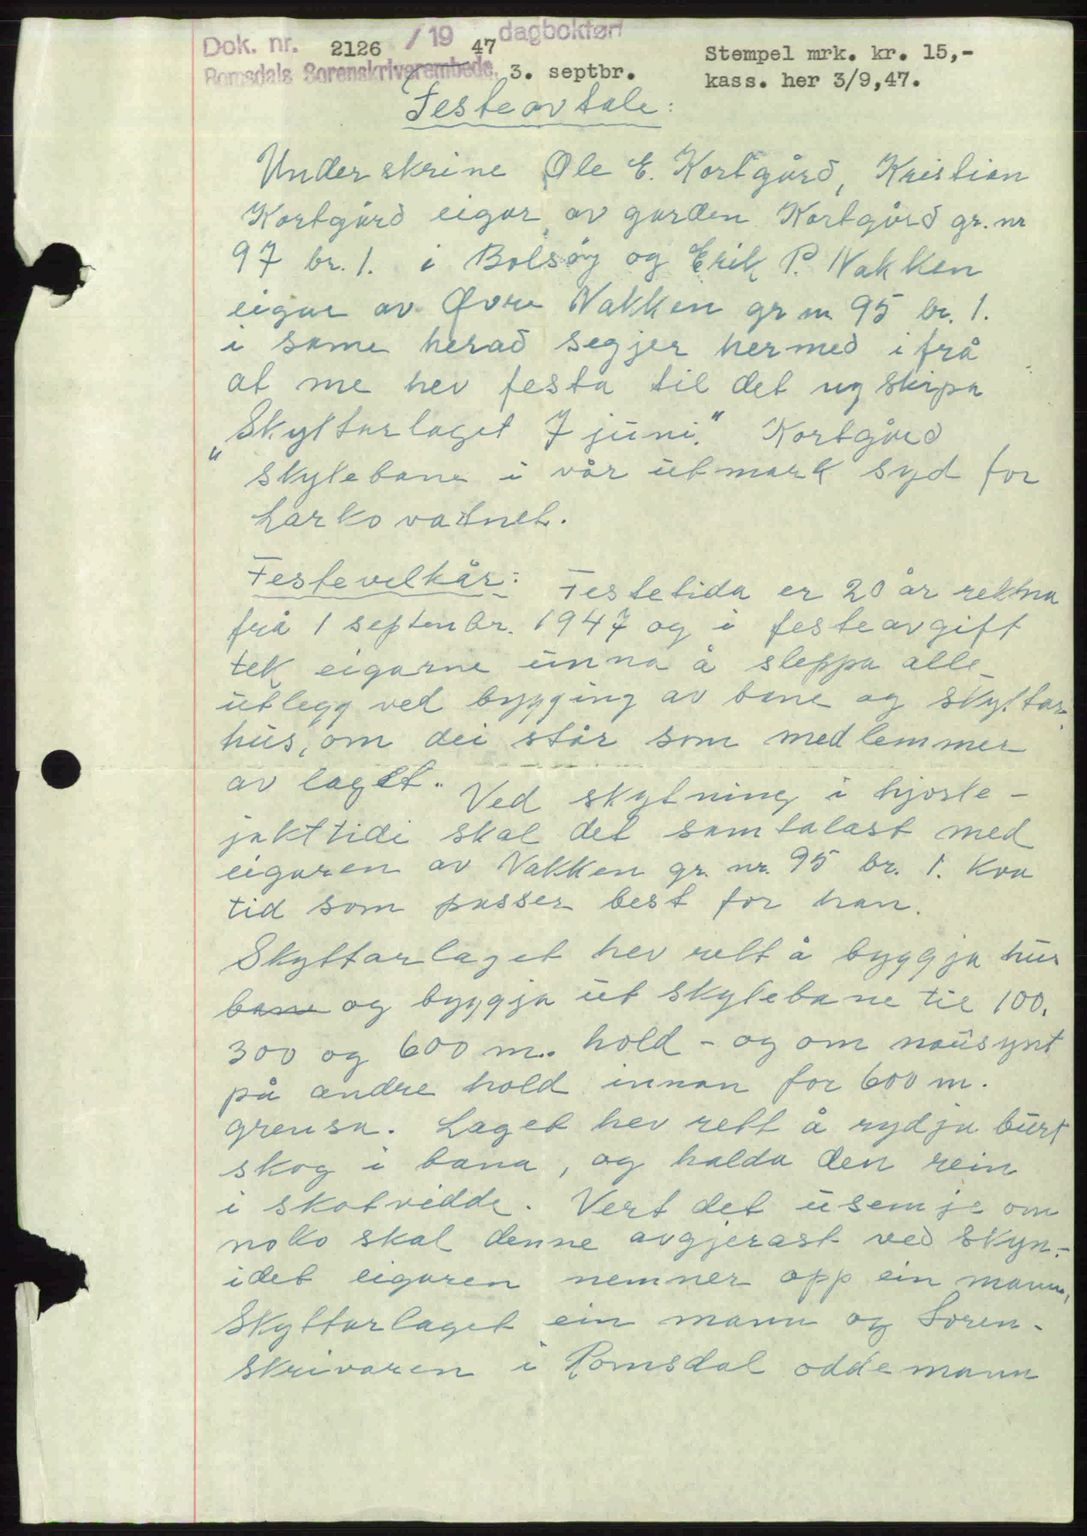 Dok. nr. 2126 / 19 47 dagbokført
Romsdals Sorenskriverembede, 3. septbr.
Stempel mrk. kr. 15,-
kass. her 3/9,47.
Festeavtale:
Underskrine Ole E. Kortgård, Kristian
Kortgård eigar av garden Kortgård gr. nr
97 br. 1. i Bolsøy og Erik P. Nakken
eigar av Øvre Nakken gr nr. 95 br. 1.
i same herad segjer hermed ifrå
at me hev festa til det ny skipa
"Skyttarlaget 7 juni." Kortgård
skytebane i vår utmark syd for
Larkovatnet.
Festevilkår: Festetida er 20 år rekna
frå 1 septembr. 1947 og i festeavgift
tek eigarne unna å sleppa alle
utlegg ved bygging av bane og skyttar-
hus, om dei står som medlemmer
av laget. Ved skytning i hjorte-
jakttidi skal det samtalast med
eigaren av Nakken gr. nr. 95 br. 1. kva
tid som passer best for han.
Skyttarlaget hev rett å byggja hus
bane og byggja ut skytebane til 100,
300 og 600 m. hold - og om nausynt
på andre hold innan for 600 m.
grensa. Laget hev rett å rydja burt
skog i bana, og halda den rein
i skotvidde. Vert det usemje om
noko skal denne avgjerast ved skyn,-
idet eigaren nemner opp ein mann,
Skyttarlaget ein mann og Soren-
skrivaren i Romsdal oddemann